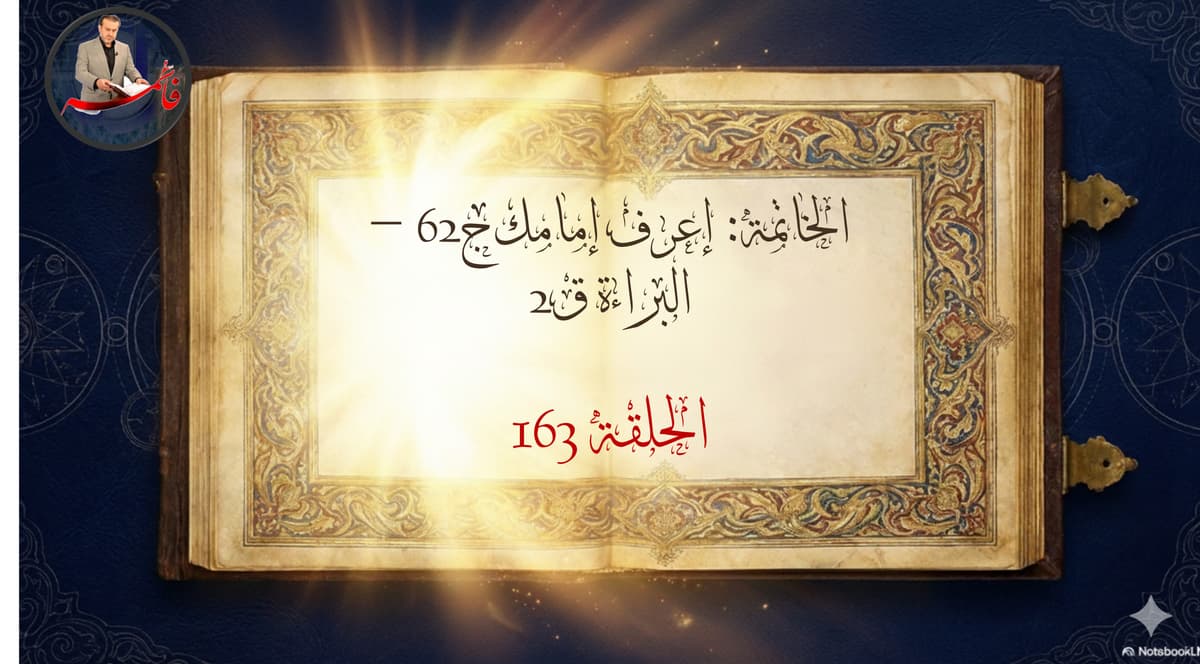 فاطمة
الخاتمة: إعرف إمامك ج62 –
البراءة ق2
الحلقة 163
NotsbookL